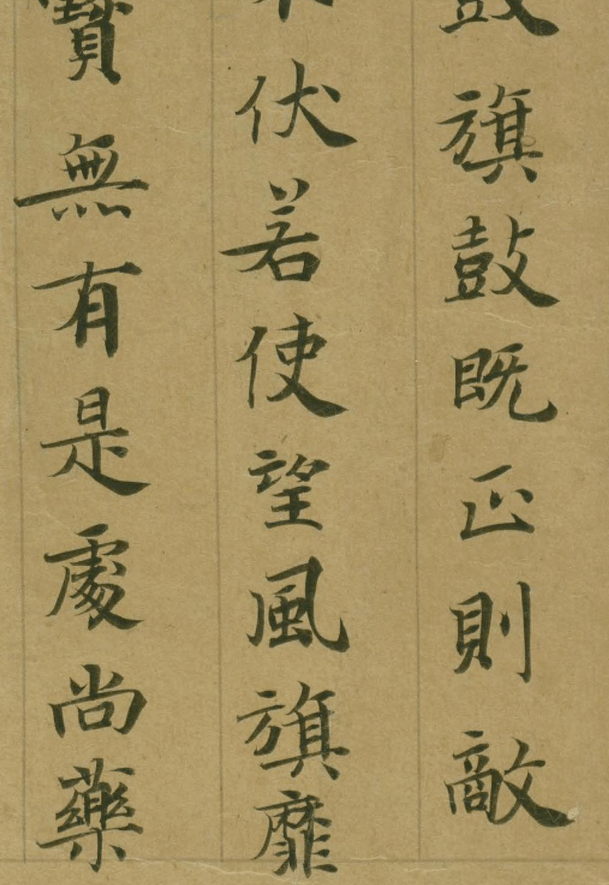 鼓旗鼓既正則敵
伏若使望風旗靡
無有是處尚藥